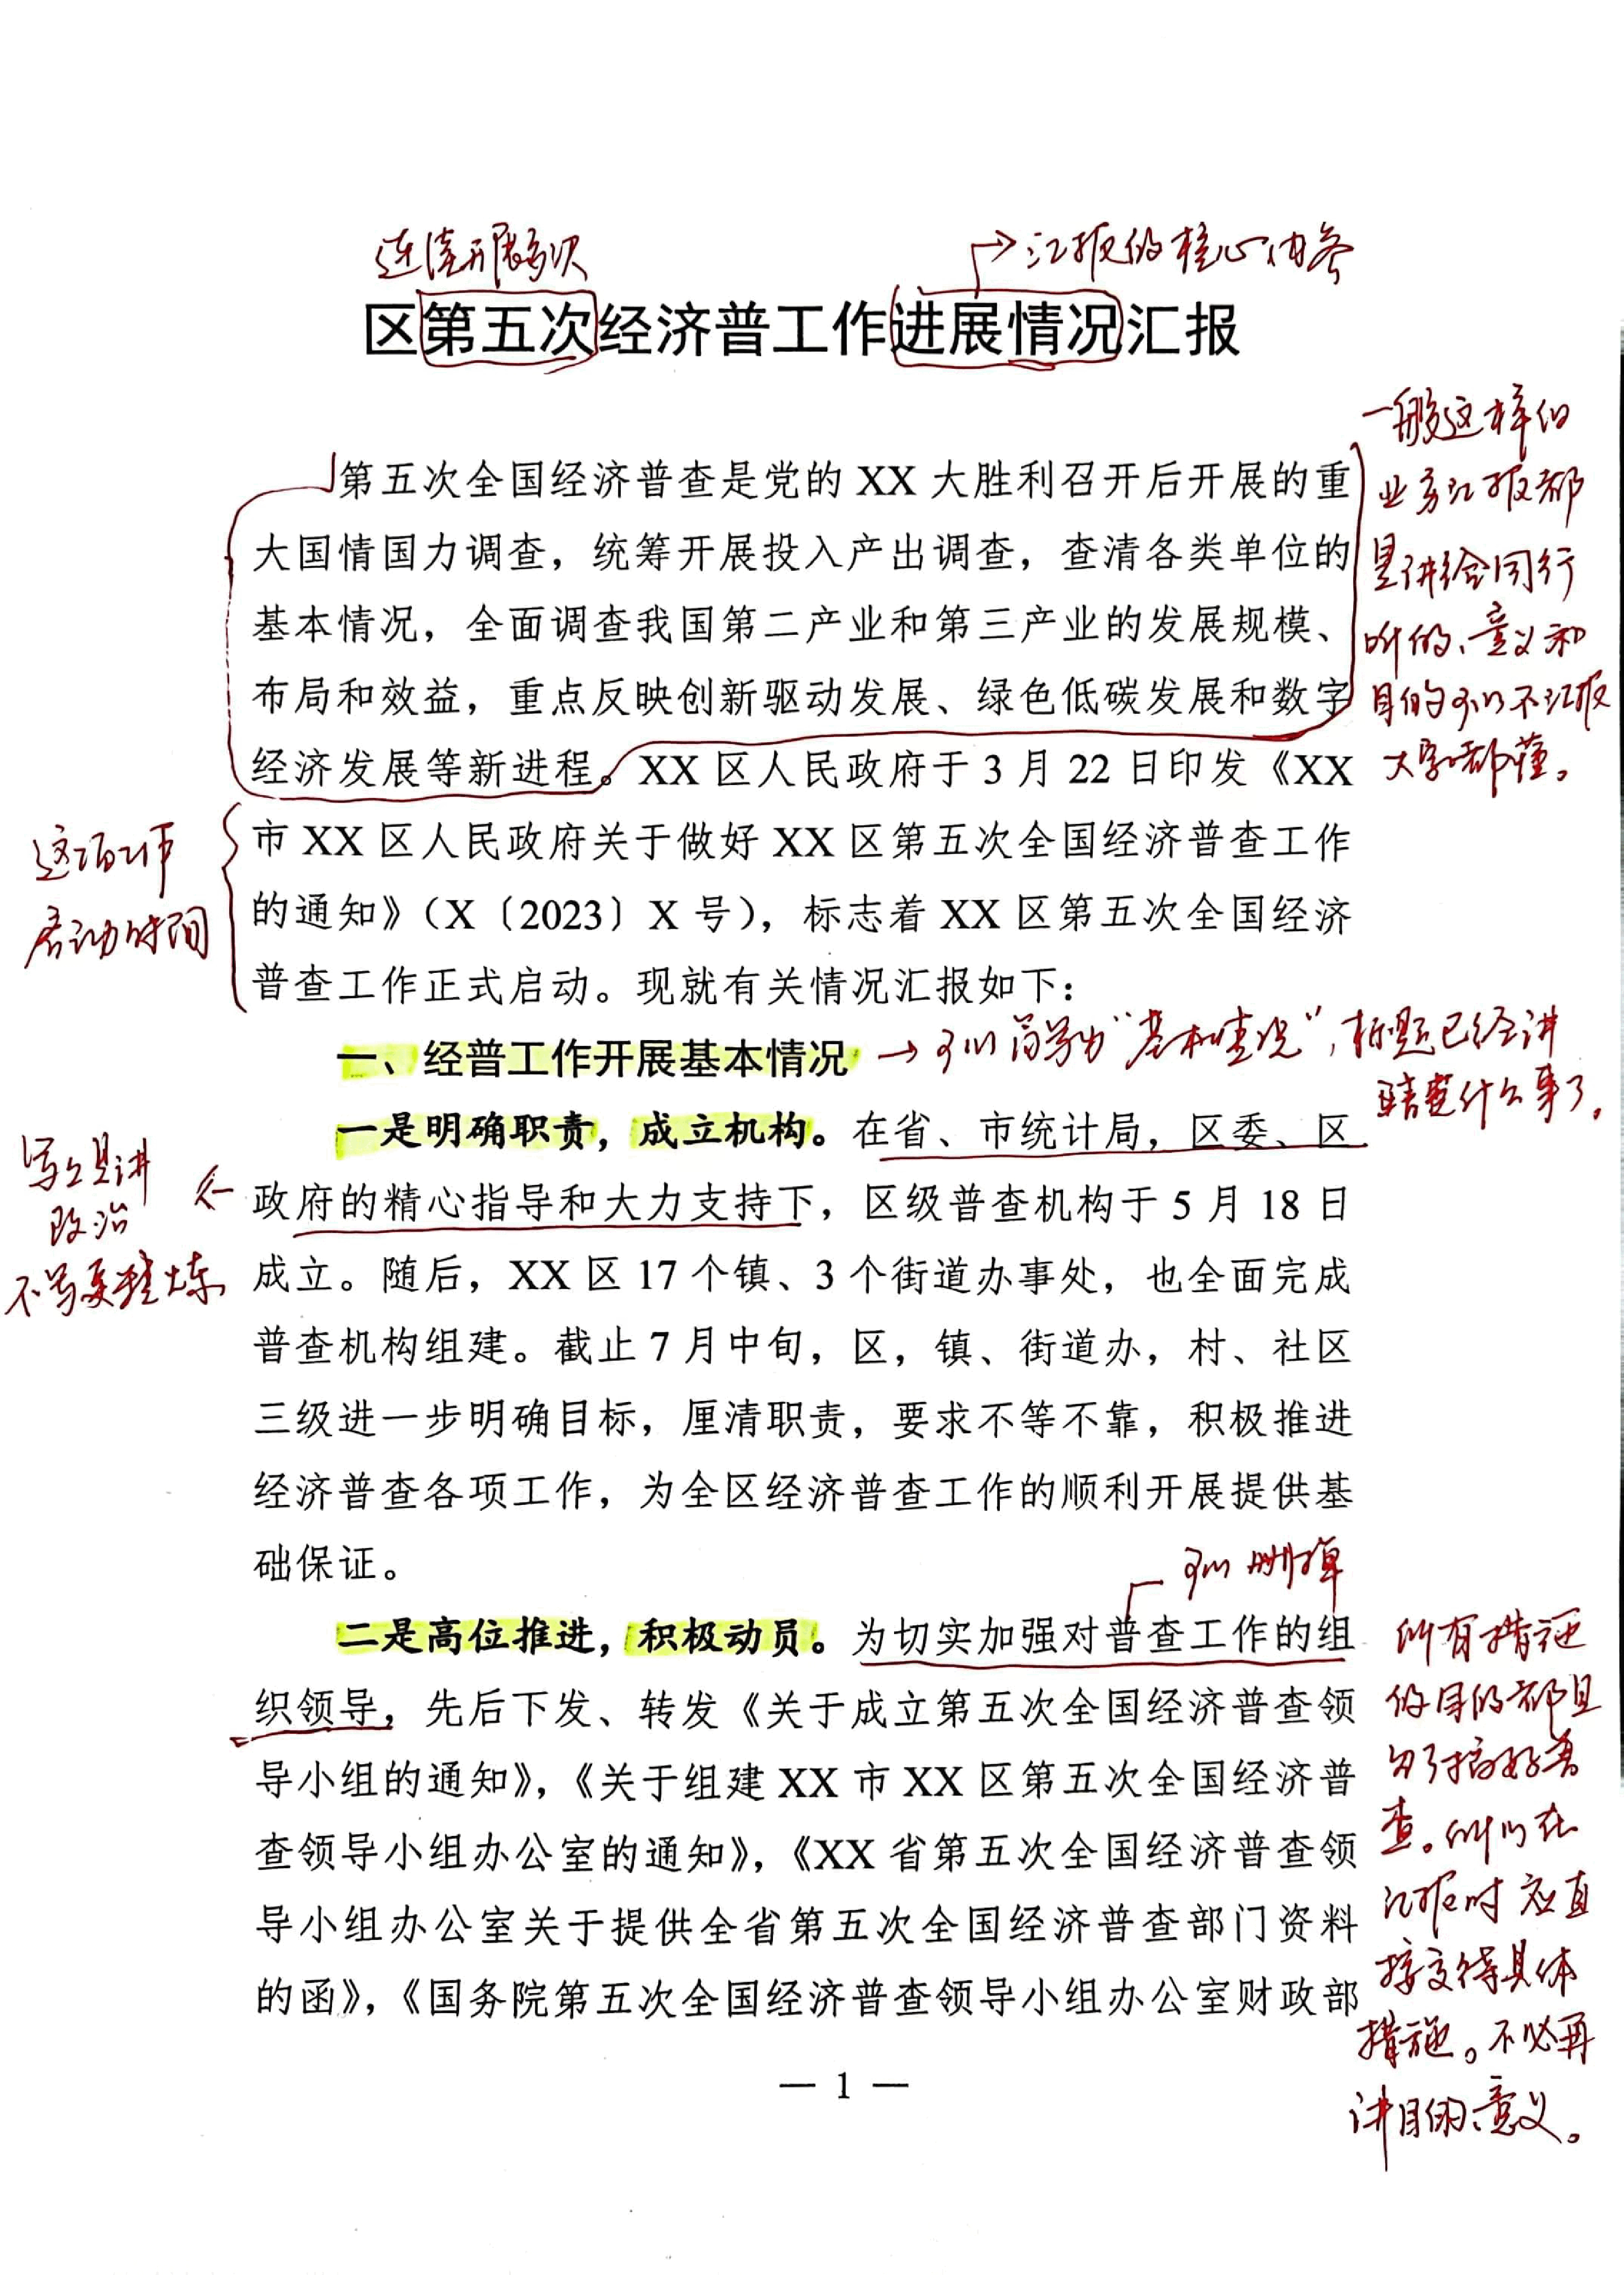 连续开展多次
→汇报的核心内容
区第五次经济普工作进展情况汇报
一般这样的
业务汇报都
是讲给同行
听的、意义和
目的可以不汇报
大家都懂。
第五次全国经济普查是党的 XX 大胜利召开后开展的重
大国情国力调查，统筹开展投入产出调查，查清各类单位的
基本情况，全面调查我国第二产业和第三产业的发展规模、
布局和效益，重点反映创新驱动发展、绿色低碳发展和数字
经济发展等新进程。XX 区人民政府于 3 月 22 日印发《XX
市 XX 区人民政府关于做好 XX 区第五次全国经济普查工作
的通知》（X〔2023〕X 号），标志着 XX 区第五次全国经济
普查工作正式启动。现就有关情况汇报如下：
这项工作
启动时间
一、经普工作开展基本情况
→可以简写为“基本情况”，标题已经讲
清楚什么事了。
一是明确职责，成立机构。在省、市统计局，区委、区
政府的精心指导和大力支持下，区级普查机构于 5 月 18 日
成立。随后，XX 区 17 个镇、3 个街道办事处，也全面完成
普查机构组建。截止 7 月中旬，区，镇、街道办，村、社区
三级进一步明确目标，厘清职责，要求不等不靠，积极推进
经济普查各项工作，为全区经济普查工作的顺利开展提供基
础保证。
写上是讲
政治
不写更精炼
可以删掉
二是高位推进，积极动员。为切实加强对普查工作的组
织领导，先后下发、转发《关于成立第五次全国经济普查领
导小组的通知》，《关于组建 XX 市 XX 区第五次全国经济普
查领导小组办公室的通知》，《XX 省第五次全国经济普查领
导小组办公室关于提供全省第五次全国经济普查部门资料
的函》，《国务院第五次全国经济普查领导小组办公室财政部
所有措施
的目的都是
为了搞好普
查。所以在
汇报时应直
接交待具体
措施。不必再
讲目的、意义。
— 1 —